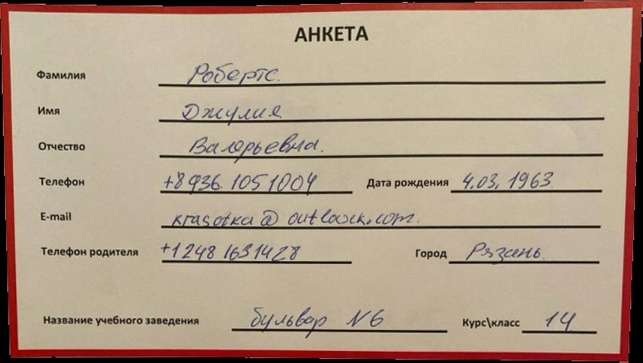 АНКЕТА
Фамилия Робертс.
Имя Джулия
Отчество Валерьевна.
Телефон +8936.1051004 Дата рождения 4.03.1963
E-mail krasotka@outlook.com.
Телефон родителя +12481631428 Город Рязань
Название учебного заведения бульвар N6 Курс\класс 14